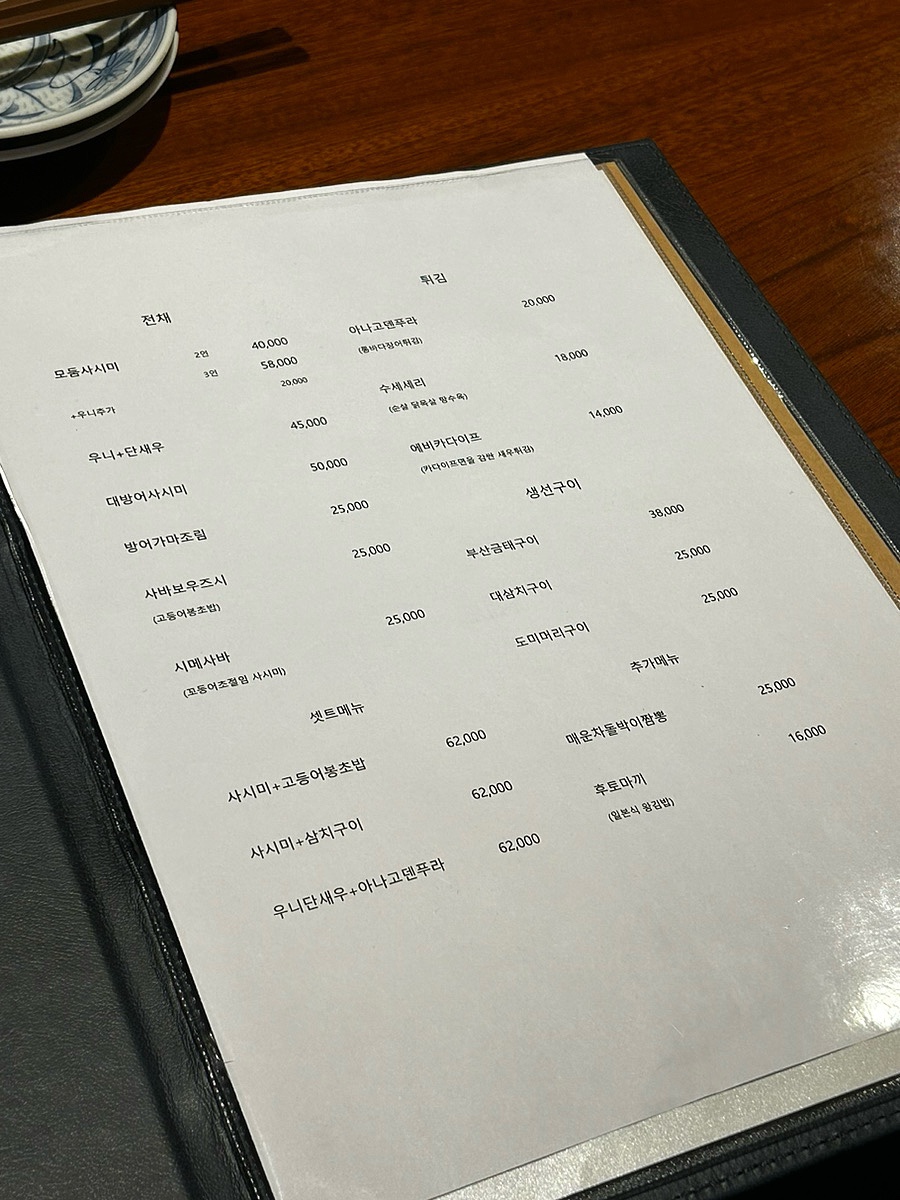 전채
모둠사시미 2인 40,000
3인 58,000
+우니추가 20,000
우니+단새우 45,000
대방어사시미 50,000
방어가마조림 25,000
사바보우즈시 25,000
(고등어봉초밥)
시메사바 25,000
(꼬등어초절임 사시미)
셋트메뉴
사시미+고등어봉초밥 62,000
사시미+삼치구이 62,000
우니단새우+아나고덴푸라 62,000
튀김
아나고덴푸라 20,000
(통바다장어튀김)
수세세리 18,000
(순살 닭목살 탕수육)
에비카다이프 14,000
(카다이프면을 감싼 새우튀김)
생선구이
부산금태구이 38,000
대삼치구이 25,000
도미머리구이 25,000
추가메뉴
매운차돌박이짬뽕 25,000
후토마끼 16,000
(일본식 왕김밥)